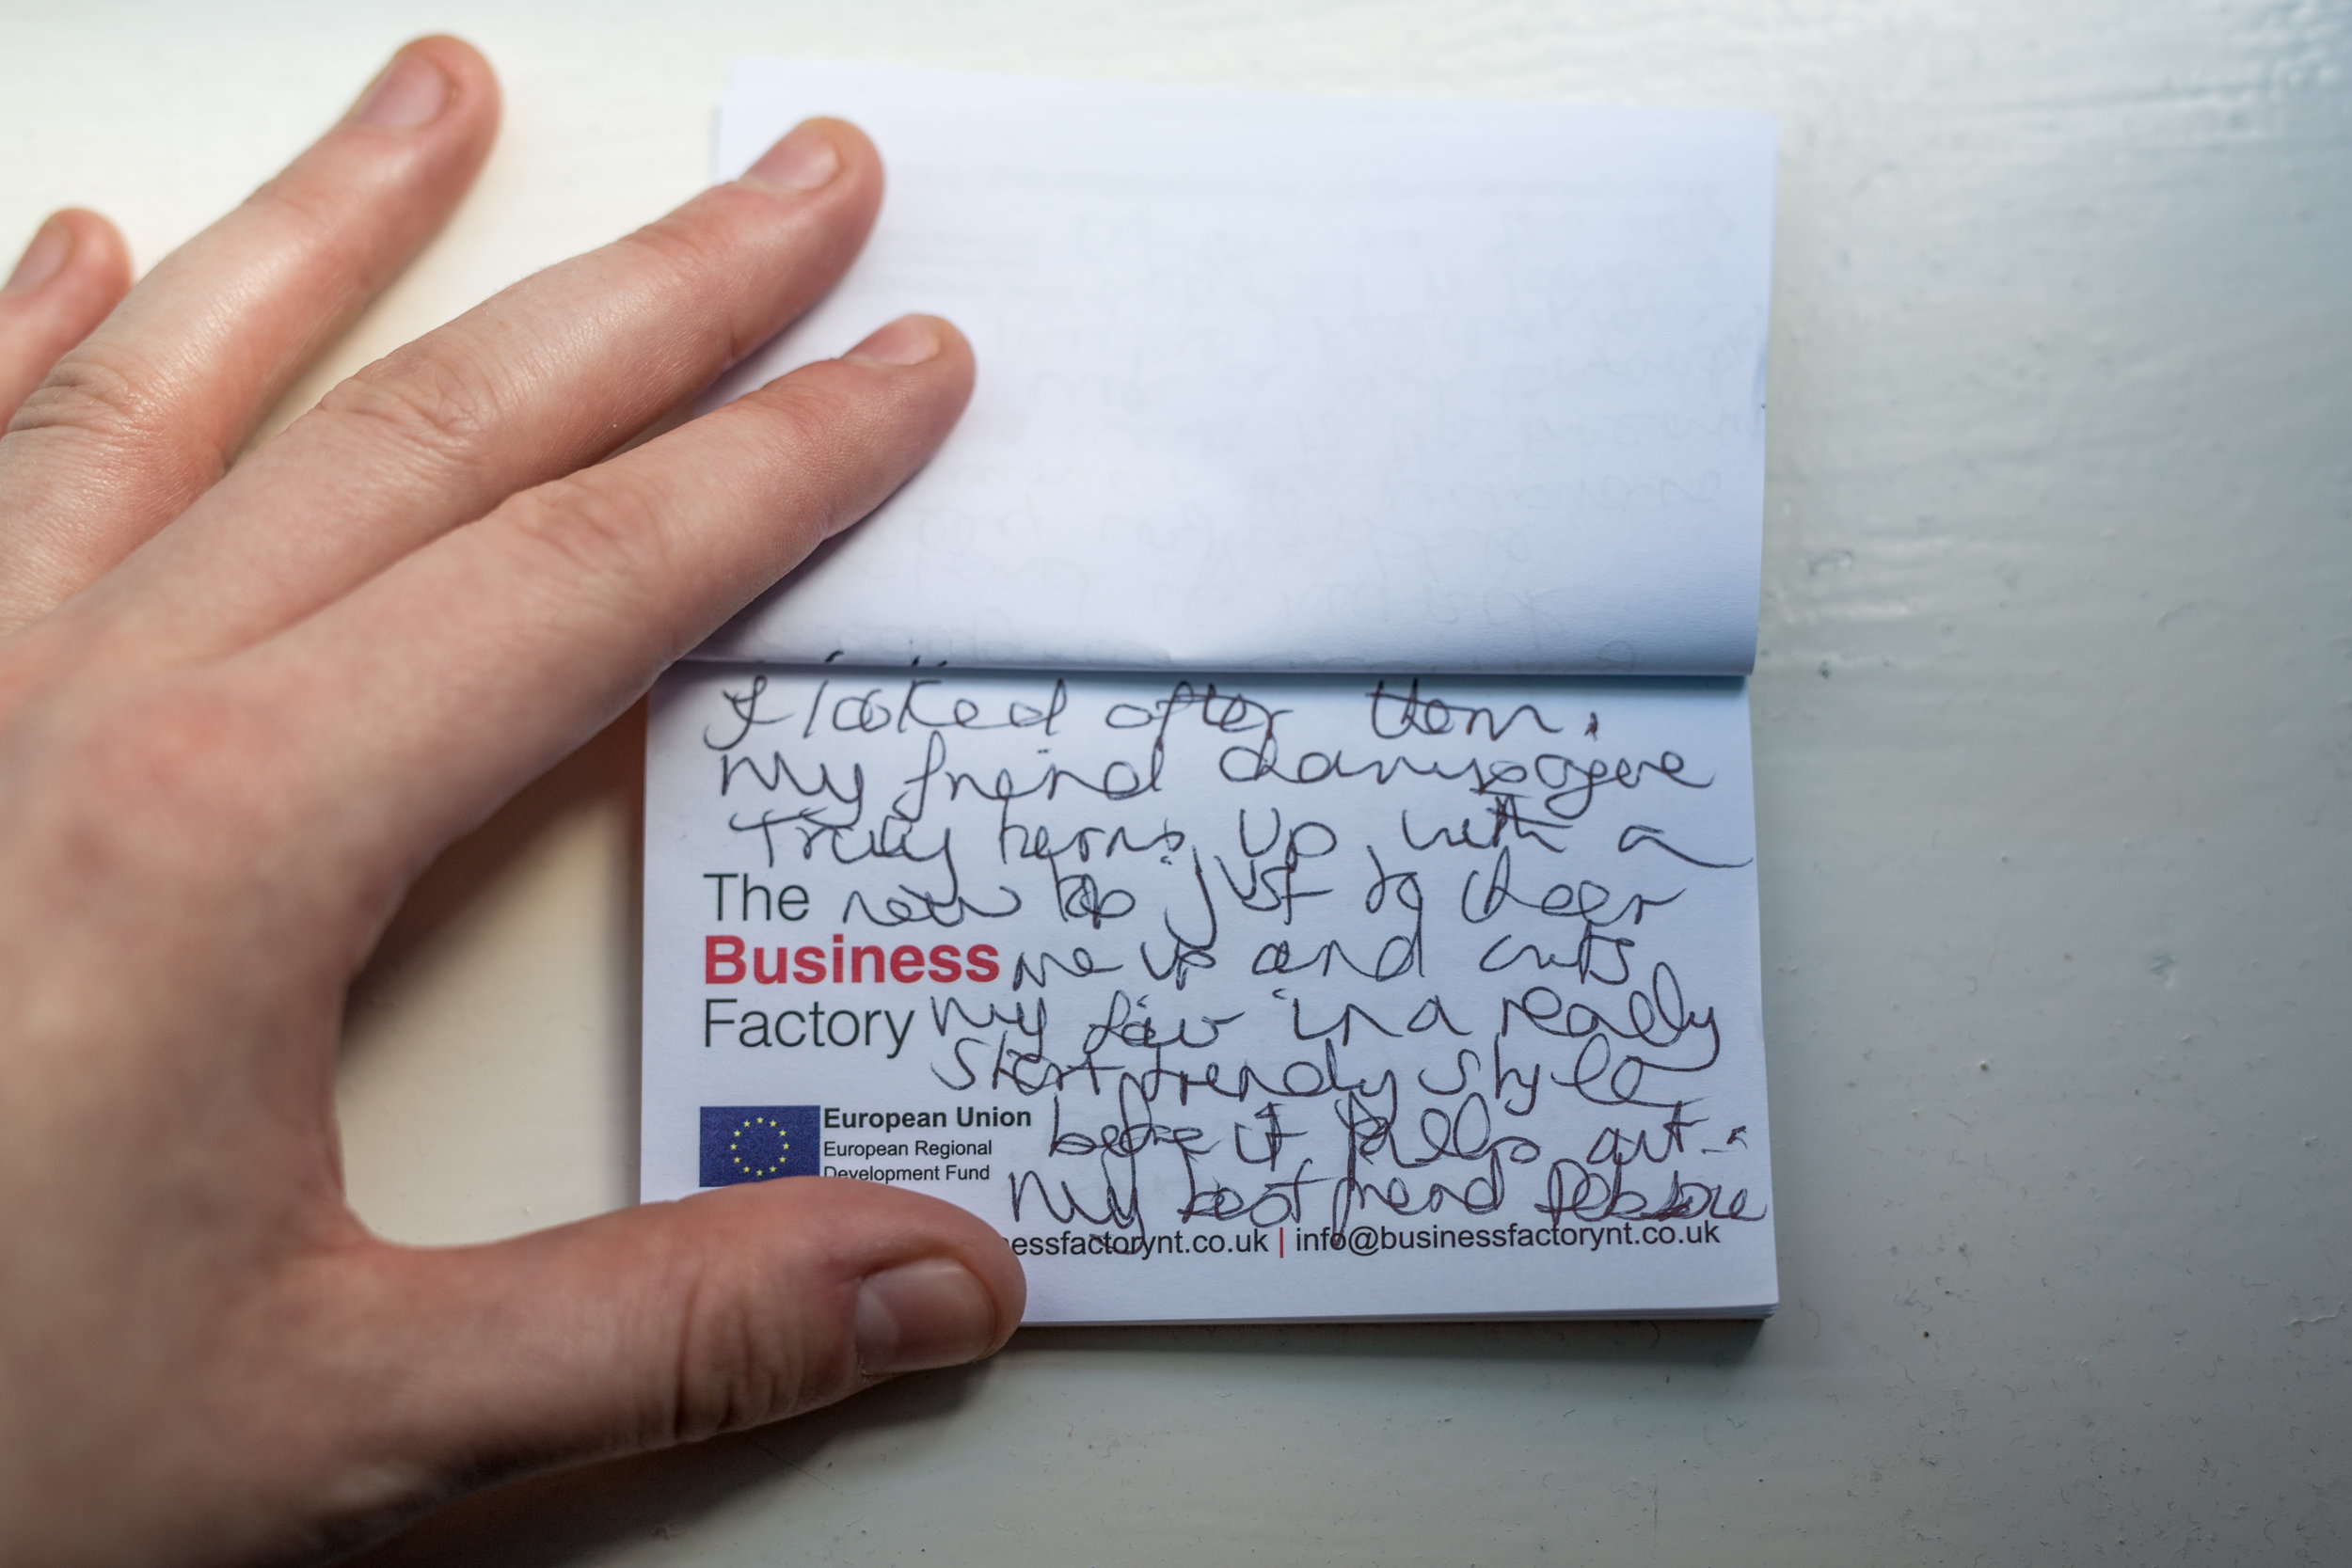 I looked after them.
My friend
Truly turns up with a
The new top just to cheer
Business me up and cuts
Factory my hair in a really
short trendy style
European Union before it falls out -
European Regional
Development Fund
My best friend Debbie
nessfactorynt.co.uk | info@businessfactorynt.co.uk